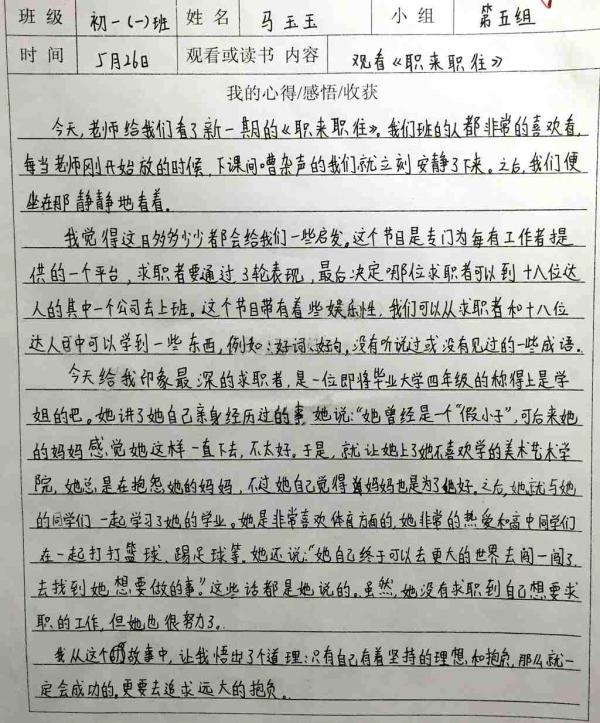 班级 初一(一)班 姓名 马玉玉 小组 第五组
时间 5月26日 观看或读书 内容 观看《职来职住》
我的心得/感悟/收获
今天,老师给我们看了新一期的《职来职住》。我们班的人都非常的喜欢看,
每当老师刚开始放的时候,下课间嘈杂声的我们就立刻安静了下来。之后,我们便
坐在那静静地看着。
我觉得这多多少少都会给我们一些启发。这个节目是专门为每有工作者提
供的一个平台,求职者要通过3轮表现,最后决定哪位求职者可以到十八位达
人的其中一个公司去上班。这个节目带有着些娱乐性,我们可以从求职者和十八位
达人中可以学到一些东西,例如:好词、好句,没有听说过或没有见过的一些成语。
今天给我印象最深的求职者,是一位即将毕业大学四年级的称得上是学
姐的吧。她讲了她自己亲身经历过的事,她说:“她曾经是一个“假小子”,可后来她
的妈妈感觉她这样一直下去,不太好。于是,就让她上了她不喜欢学的美术艺术学
院,她总是在抱怨她的妈妈,不过她自己觉得妈妈也是为了她好。之后,她就与她
的同学们一起学习了她的学业。她是非常喜欢体育方面的,她非常的热爱和高中同学们
在一起打打篮球、踢足球等。她还说:“她自己终于可以去更大的世界去闯一闯了,
去找到她想要做的事。”这些话都是她说的。虽然,她没有求职到自己想要求
职的工作,但她也很努力了。
我从这个故事中,让我悟出了个道理:只有自己有着坚持的理想和抱负,那么就一
定会成功的,更要去追求远大的抱负。